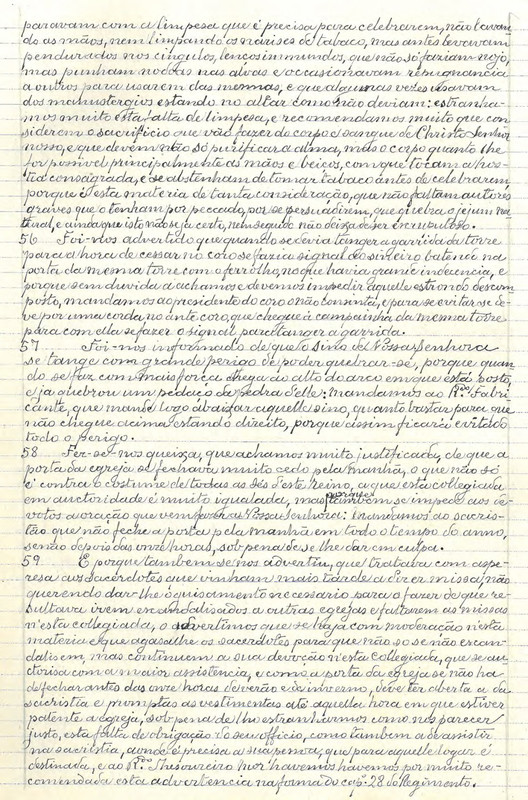 paravam com a limpesa que é precisa para celebrarem, não lavan
do as mãos, nem limpando os narises de tabaco, mas antes levavam
pendurados nos cingulos, lenços immundos, que não só faziam nojo,
mas punham nodoas nas alvas e occasionavam repugnancia
a outros para usarem das mesmas, e que algumas vezes usavam
dos manustergios estando no altar como não deviam: estranha-
mos muito esta falta de limpesa, e recommendamos muito que con
siderem o sacrificio que vão fazer do corpo e sangue de Christo Senhor
nosso, e que devem não só purificar a alma, mas o corpo quanto lhe
for possivel principalmente as mãos e beiços, com que tocam a hos-
tia consagrada, e se abstenham de tomar tabaco antes de celebrarem
porque é esta materia de tanta consideração, que não faltam auctores
graves que o tenham por peccado, por se persuadirem, que quebra o jejum na
tural, e ainda que isto não seja certo, nem seguido não deixa de ser escrupuloso.
56 Foi-nos advertido que quando se devia tanger a garrida da torre
para a hora de cessar no coro se fazia signal ao sineiro batendo na
porta da mesma torre com o ferrolho, no que havia grande indecencia, e
porque sem duvida a achamos e devemos impedir aquelle estrondo descom
posto, mandamos ao presidente do coro o não consinta, e para se evitar se de-
ve por uma corda no ante coro, que chegue á campainha da mesma torre
para com ella se fazer o signal para tanger a garrida.
57 Foi-nos informado de que o sino de Nossa Senhora
se tange com grande perigo de poder quebrar-se, porque quan
do se faz com mais força chega ao alto do arco em que está posto,
e já quebrou um pedaço da pedra d'elle: mandamos ao R.do Fabri
cante, que mande logo abaixar aquelle sino, quanto bastar para que
não chegue acima estando direito, porque assim ficará evitado
todo o perigo.
58 Fez-se-nos queixa, que achamos muito justificada, de que a
porta da egreja se fechava muito cedo pela manhã, o que não só
é contra o costume de todas as Sés d'este Reino, a que esta collegiada
em auctoridade é muito igualada, mas porque tambem se impede aos de-
votos a oração que vem fazer a Nossa Senhora: mandamos ao sacris-
tão que não feche a porta pela manhã em todo o tempo do anno,
senão depois das onze horas, sob pena de se lhe dar em culpa.
59 E porque tambem se nos advertiu, que tratava com aspe-
resa aos sacerdotes que vinham mais tarde a dizer missa, não
querendo dar-lhe o guisamento necessario para o fazer de que re-
sultava irem escandalisados a outras egrejas e faltarem as missas
n'esta collegiada, o advertimos que se haja com moderação n'esta
materia e que agasalhe os sacerdotes para que não só se não escan-
dalisem, mas continuem a sua devoção n'esta collegiada, que se au-
ctorisa com a maior assistencia, e como a porta da egreja se não ha
de fechar antes das onze horas de verão e de inverno, deve ter aberta a
sacristia e promptas as vestimentas até aquella hora em que estiver
patente a egreja, sob pena de lhe estranharmos como nos parecer
justo, esta falta de obrigação do seu officio, como tambem a de assistir
na sacristia, aonde é precisa a sua pessoa, que para aquelle logar é
destinada, e ao R.do Thesoureiro mór havemos havemos por muito re-
commendada esta advertencia na forma do cap.º 28 do Regimento.